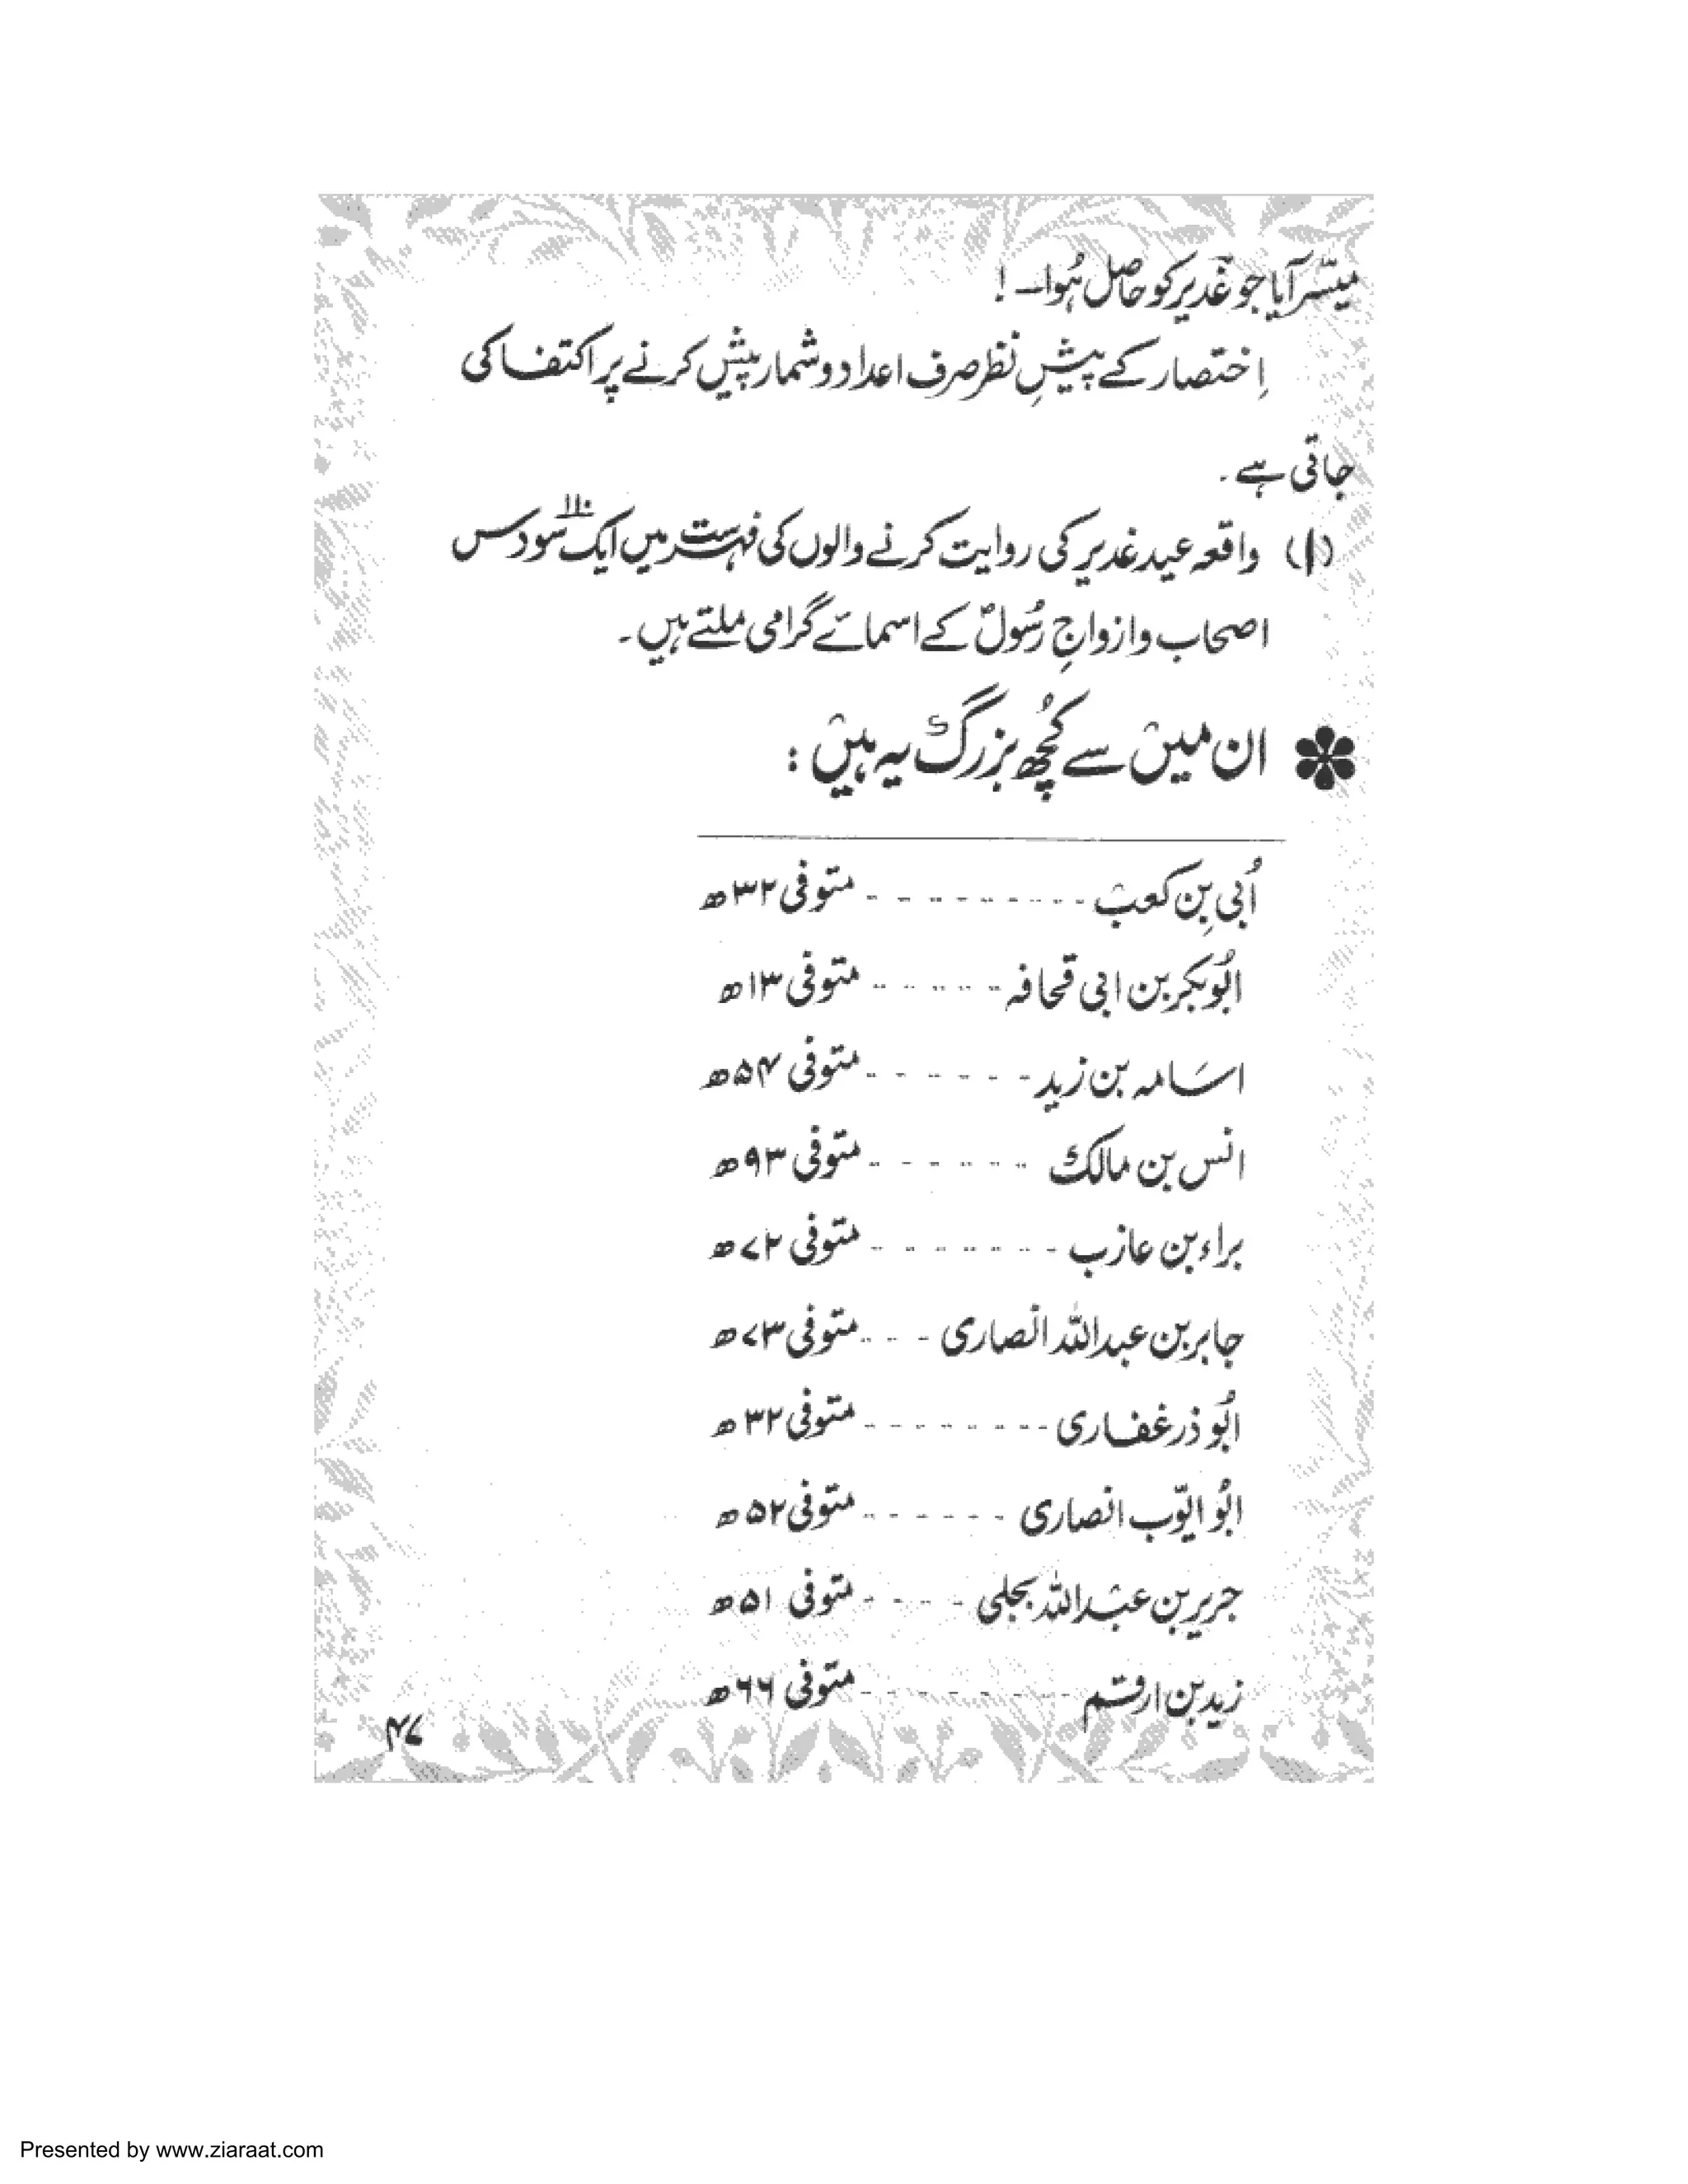 میسّر آیا جو غدیر کو حاصل ہُوا۔!
اِختصار کے پیشِ نظر صرف اعداد و شمار پیش کرنے پر اکتفا کی
جاتی ہے۔
(۱) واقعہ عید غدیر کی روایت کرنے والوں کی فہرست میں ایک سو دس ۱۱۰
اصحاب و ازواجِ رسُولؐ کے اسمائے گرامی ملتے ہیں۔
ان میں سے کُچھ بزرگ یہ ہیں:
اُبی بِن کعب ---------- متوفی ۳۲ھ
ابُوبکر بن ابی قحافہ ------ متوفی ۱۳ھ
اسَامہ بن زید ------- متوفی ۵۴ھ
انس بن مالک ------- متوفی ۹۳ھ
براء بن عازب -------- متوفی ۷۲ھ
جابر بن عبداللہ انصاری ---- متوفی ۷۳ھ
ابُو ذر غفاری -------- متوفی ۳۲ھ
ابُو ایوّب انصاری ------- متوفی ۵۲ھ
جریر بن عبداللہ بجلی ----- متوفی ۵۱ھ
زید بن ارقم --------- متوفی ۶۶ھ
۴۷
Presented by www.ziaraat.com